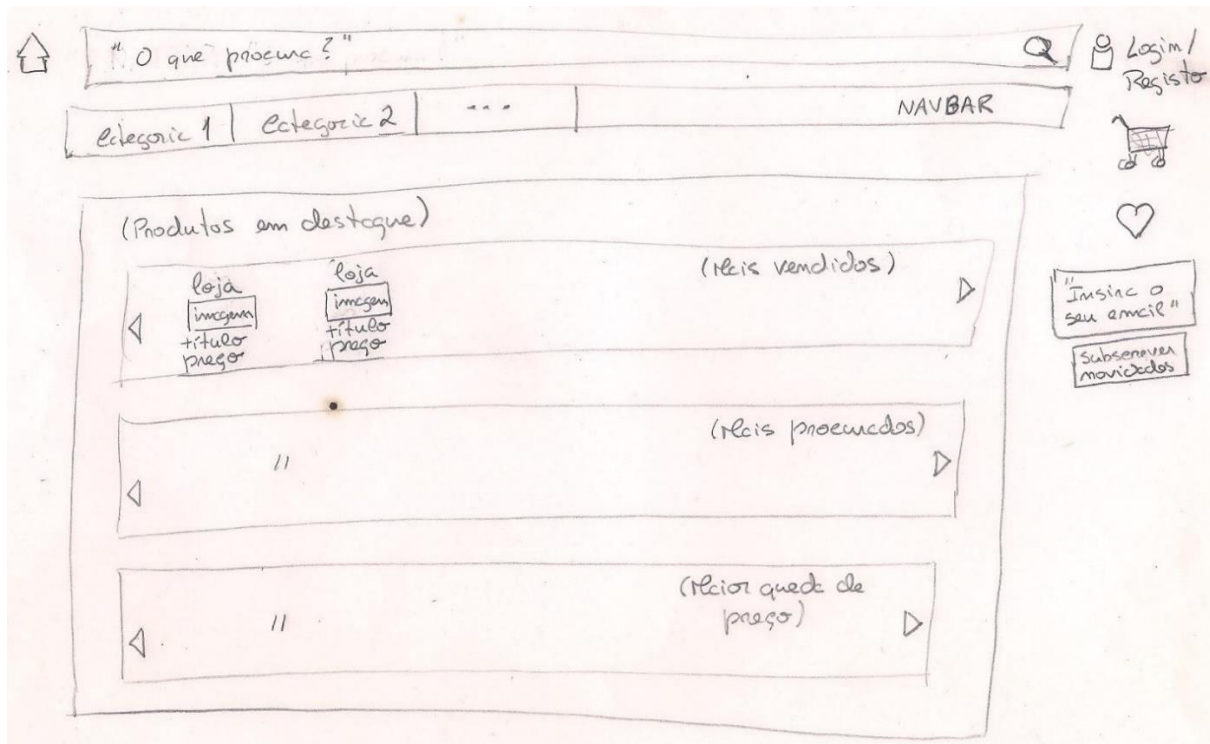 "O que procura?"
Login/
Registo
Categoria 1
Categoria 2
...
NAVBAR
(Produtos em destaque)
(Mais vendidos)
loja
imagem
título
preço
loja
imagem
título
preço
"Insira o
seu email"
Subscrever
novidades
(Mais procurados)
"
(Maior queda de
preço)
"